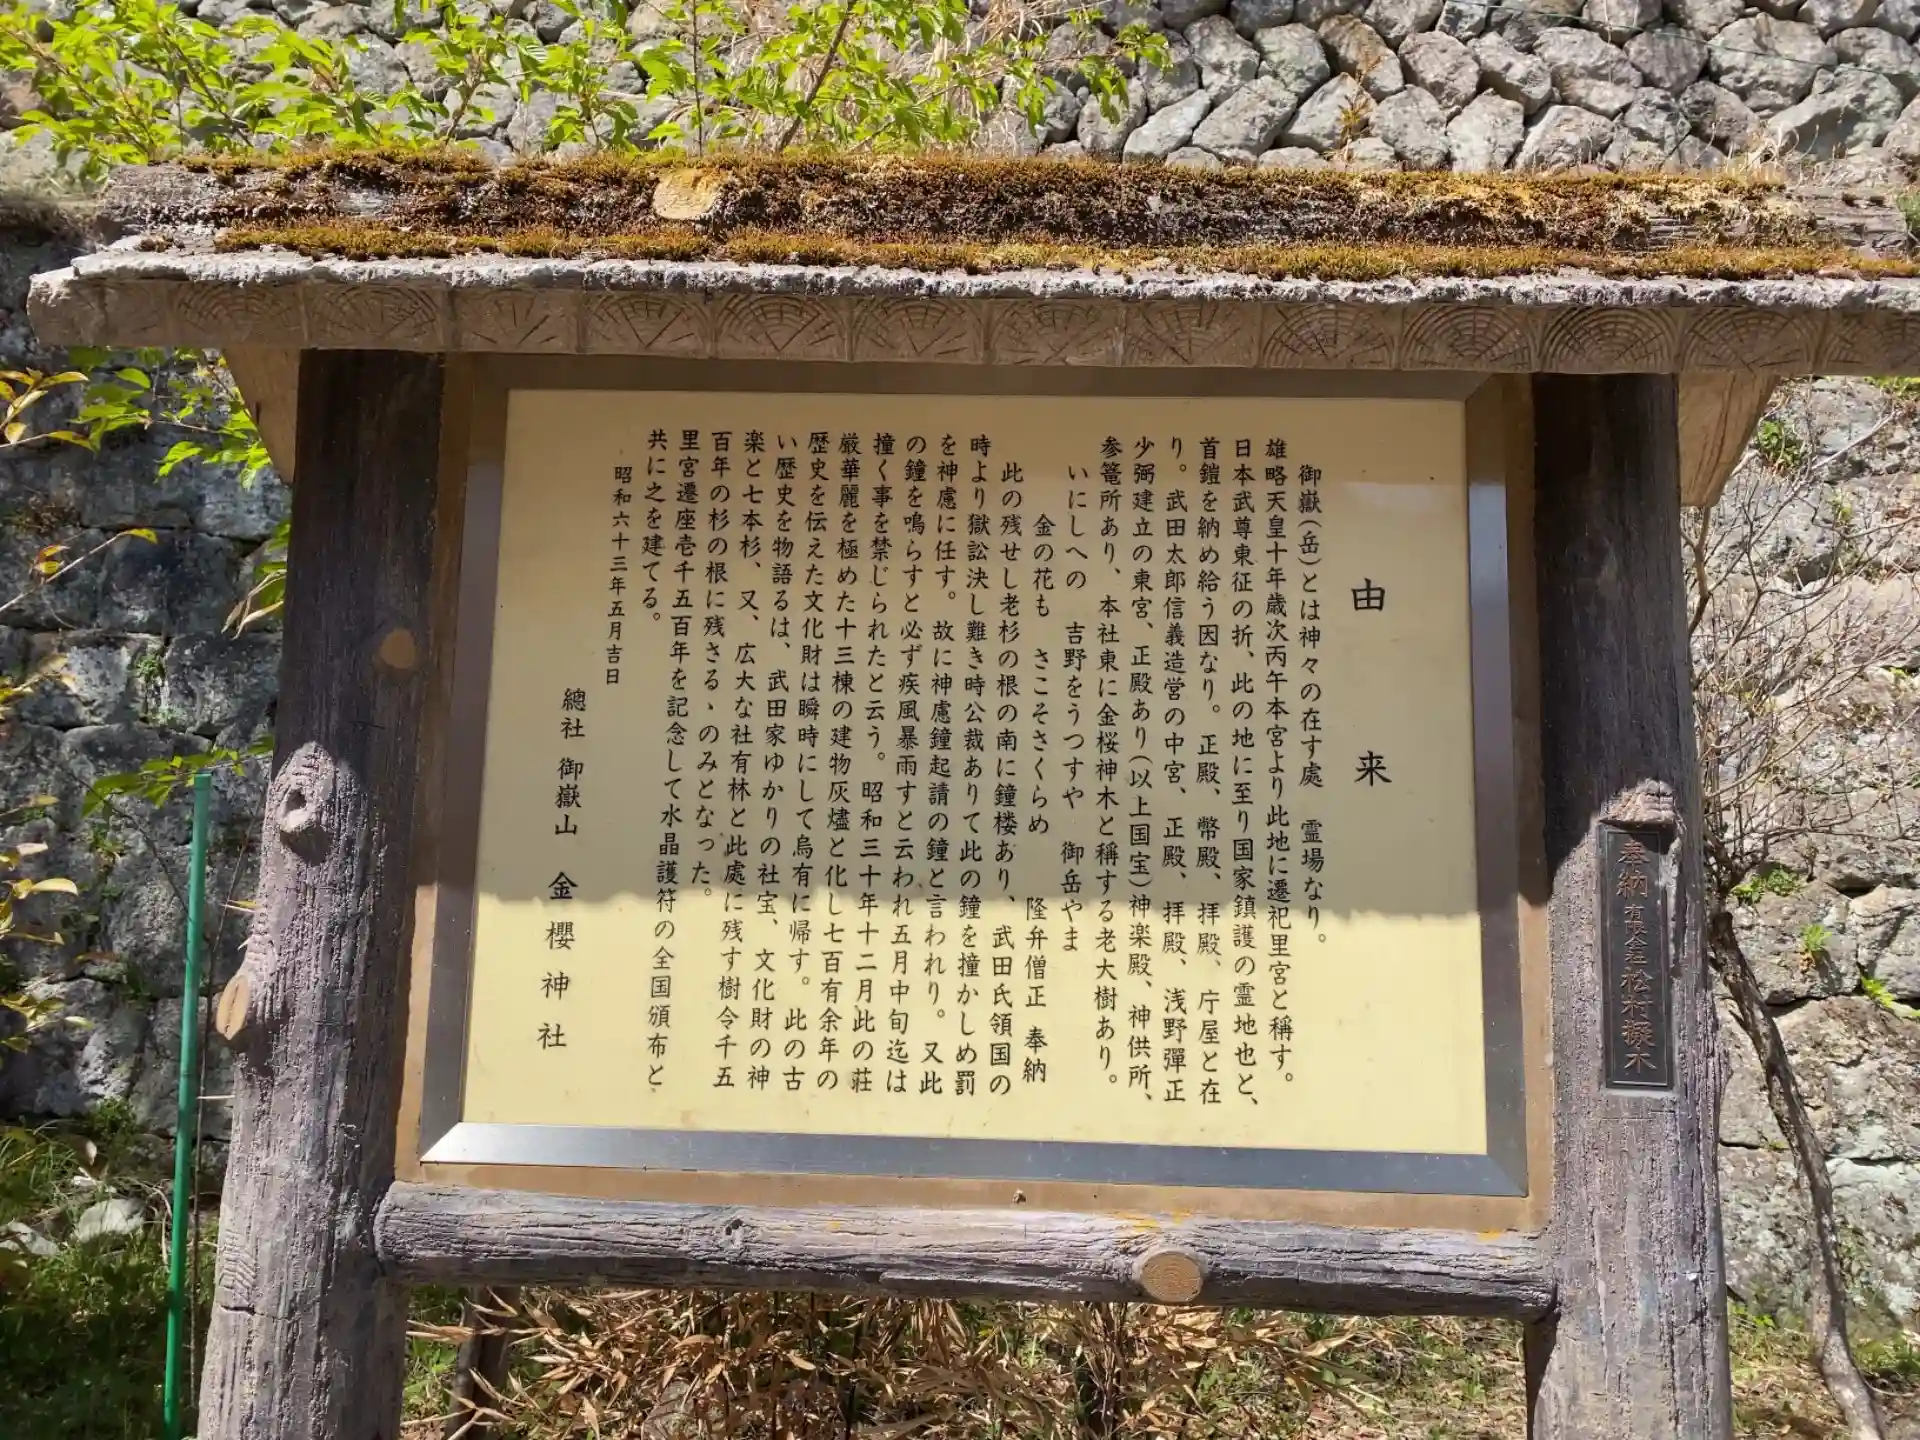 由来
御嶽(岳)とは神々の在す處 霊場なり。
雄略天皇十年歳次丙午本宮より此地に遷祀里宮と稱す。
日本武尊東征の折、此の地に至り国家鎮護の霊地也と、
首鎧を納め給う因なり。正殿、幣殿、拝殿、庁屋と在
り。武田太郎信義造営の中宮、正殿、拝殿、浅野彈正
少弼建立の東宮、正殿あり(以上国宝)神楽殿、神供所、
参篭所あり、本社東に金桜神木と稱する老大樹あり。
いにしへの 吉野をうつすや 御岳やま
金の花も さこそさくらめ 隆弁僧正 奉納
此の残せし老杉の根の南に鐘楼あり、武田氏領国の
時より獄訟決し難き時公裁ありて此の鐘を撞かしめ罰
を神慮に任す。故に神慮鐘起請の鐘と言われり。又此
の鐘を鳴らすと必ず疾風暴雨すと云われ五月中旬迄は
撞く事を禁じられたと云う。昭和三十年十二月此の荘
厳華麗を極めた十三棟の建物灰燼と化し七百有余年の
歴史を伝えた文化財は瞬時にして烏有に帰す。此の古
い歴史を物語るは、武田家ゆかりの社宝、文化財の神
楽と七本杉、又、広大な社有林と此處に残す樹令千五
百年の杉の根に残さるゝのみとなった。
里宮遷座壱千五百年を記念して水晶護符の全国頒布と
共に之を建てる。
昭和六十三年五月吉日
總社 御嶽山 金櫻神社
奉納 有限会社 松村擬木